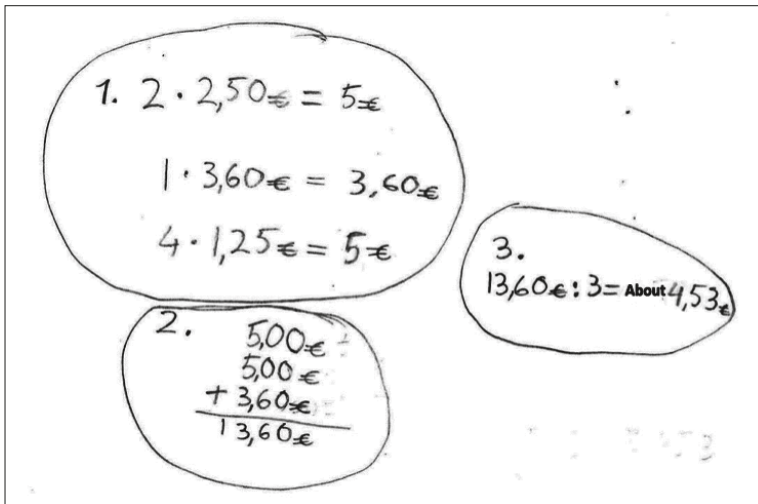 1. 2 · 2,50€ = 5€
1 · 3,60€ = 3,60€
4 · 1,25€ = 5€
2.
5,00€
5,00€
+ 3,60€
13,60€
3.
13,60€ : 3 = About 4,53€